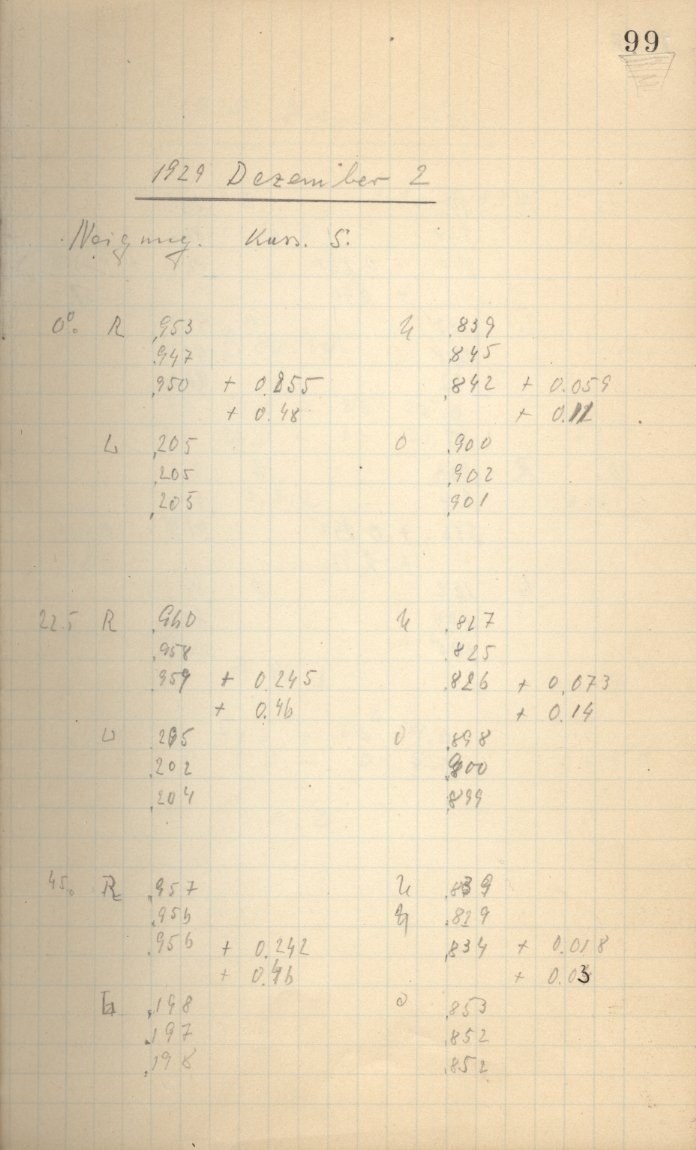 99
1929 Dezember 2
Neigung. Kass. S.
0°. R .953 U .839
.947 .845
.950 + 0.255 .842 + 0.059
+ 0.48 + 0.12
L .205 O .900
.205 .902
.205 .901
22.5 R .960 U .827
.958 .825
.959 + 0.245 .826 + 0.073
+ 0.46 + 0.14
L .205 O .898
.202 .900
.204 .899
45°. R .957 U .839
.956 U .829
.956 + 0.242 .834 + 0.018
+ 0.46 + 0.03
L .198 O .853
.197 .852
.198 .852